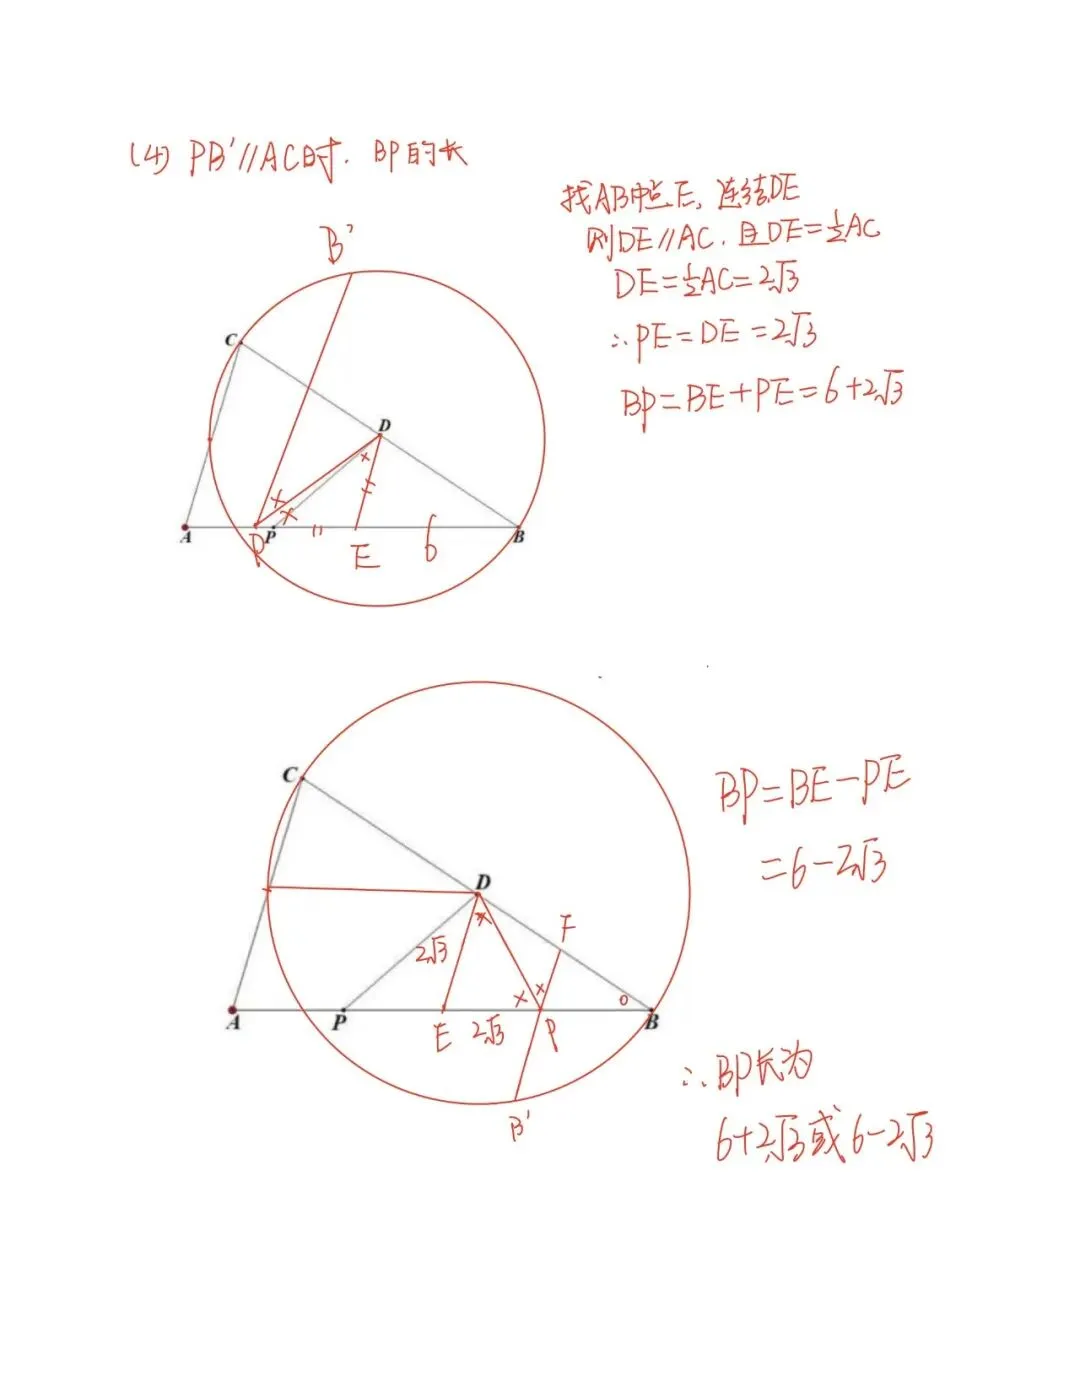 (4) PB'∥AC时. BP的长
找AB中点E, 连结DE
则DE∥AC. 且DE=½AC
DE=½AC=2√3
∴PE=DE=2√3
BP=BE+PE=6+2√3
B'
C
D
A
P
P
E
6
B
C
D
F
2√3
A
P
E
2√3
P
B
B'
BP=BE-PE
=6-2√3
∴BP长为
6+2√3或6-2√3